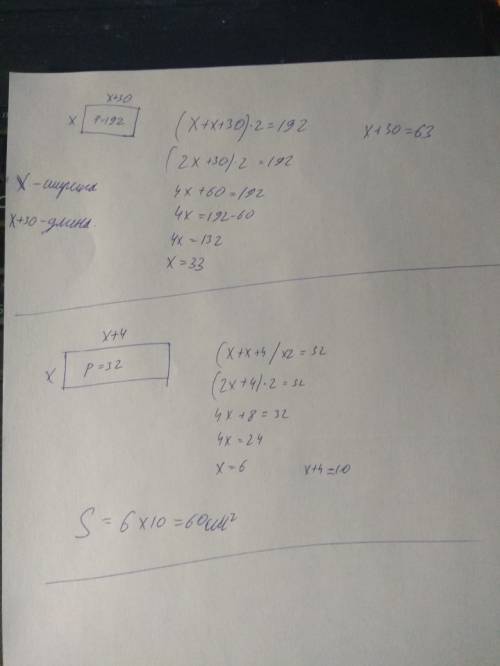 x+30
x P=192
(x+x+30)·2=192 x+30=63
(2x+30)·2=192
x - ширина 4x+60=192
x+30 - длина. 4x=192-60
4x=132
x=33
x+4
x P=32
(x+x+4)x2=32
(2x+4)·2=32
4x+8=32
4x=24
x=6 x+4=10
S=6x10=60см²